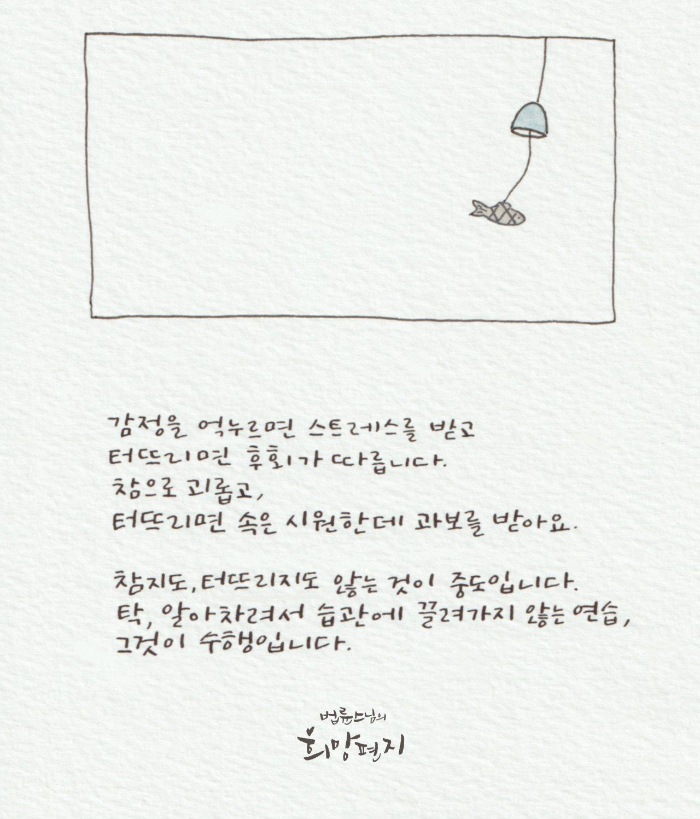 감정을 억누르면 스트레스를 받고
터뜨리면 후회가 따릅니다.
참으로 괴롭고,
터뜨리면 속은 시원한데 과보를 받아요.
참지도, 터뜨리지도 않는 것이 중도입니다.
탁, 알아차려서 습관에 끌려가지 않는 연습,
그것이 수행입니다.
법륜스님의
희망편지